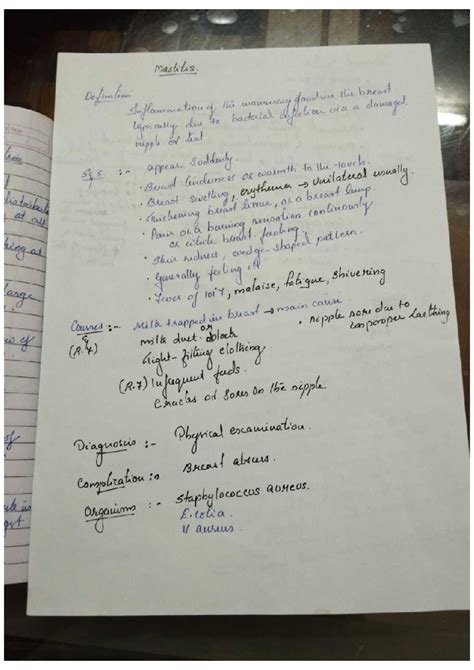 Mastitis.
Definition
Inflammation of the mammary gland in the breast
typically due to bacterial infection via a damaged
nipple or teat
S/S :- appear Suddenly.
• Breast tenderness or warmth to the touch.
• Breast swelling, erythema → Unilateral usually.
• Thickening breast tissue, or a breast lump.
• Pain or a burning sensation continously
or while breast feeding.
• Skin redness, wedge-shaped pattern.
• Generally feeling ill
• Fever of 101°F, malaise, fatigue, shivering
Causes :- Milk trapped in breast → main cause
& (R.F) milk duct or block • nipple sore due to
Tight-fitting clothing improper lactching
(R.F) Infrequent feeds.
Cracks or Sores on the nipple.
Diagnosis :- Physical examination.
Complication :- Breast abscess.
Organisms :- Staphylococcus aureus.
E.colia.
aureus.